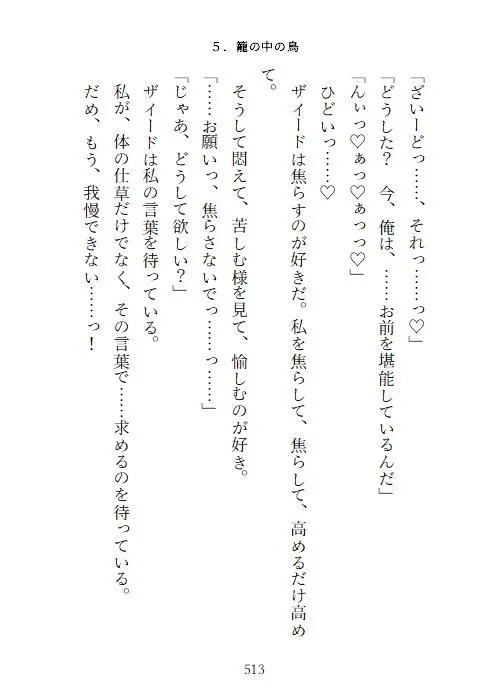 ５．籠の中の鳥
「ざいーどっ……、それっ……っ♡」
「どうした？　今、俺は、……お前を堪能しているんだ」
「んぃっ♡ぁっ♡ぁっっ♡」
　ひどいっ……♡
　ザイードは焦らすのが好きだ。私を焦らして、焦らして、高めるだけ高め
て。
　そうして悶えて、苦しむ様を見て、愉しむのが好き。
「……お願いっ、焦らさないでっ……っ……」
「じゃあ、どうして欲しい？」
　ザイードは私の言葉を待っている。
　私が、体の仕草だけでなく、その言葉で……求めるのを待っている。
　だめ、もう、我慢できない……っ！
513